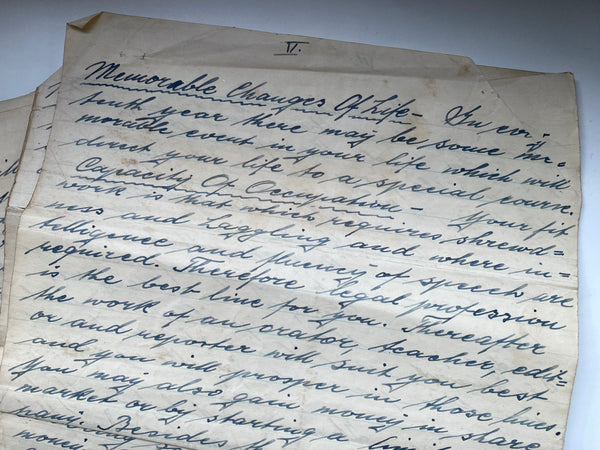 V.
Memorable Changes Of Life - In eve-
tenth year there may be some me-
morable event in your life which will
direct your life to a special course.
Capacity Of Occupation - Your fit
work is that which requires shrewd-
ness and haggling and where in-
telligence and fluency of speech are
required. Therefore legal profession
is the best line for you. Thereafter
the work of an orator, teacher, edit-
or and reporter will suit you best
and you will prosper in those lines.
You may also gain money in share
market or by starting a
Besides